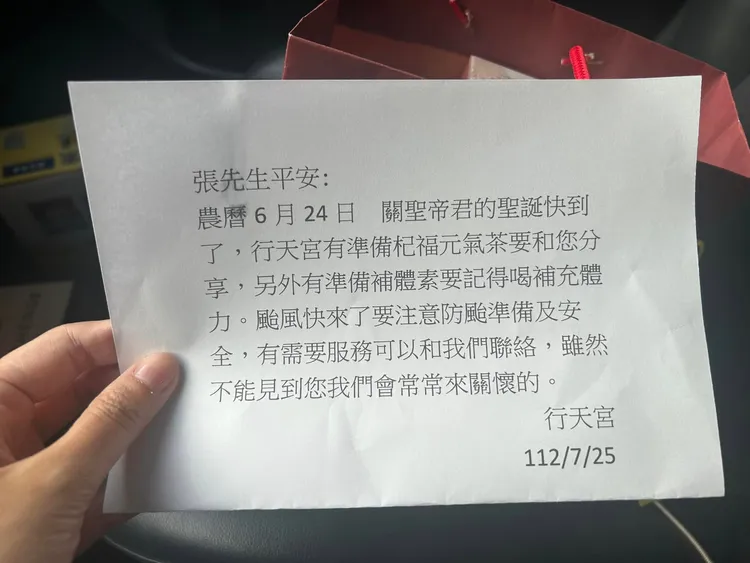 張先生平安:
農曆 6 月 24 日　關聖帝君的聖誕快到
了，行天宮有準備杞福元氣茶要和您分
享，另外有準備補體素要記得喝補充體
力。颱風快來了要注意防颱準備及安
全，有需要服務可以和我們聯絡，雖然
不能見到您我們會常常來關懷的。
行天宮
112/7/25